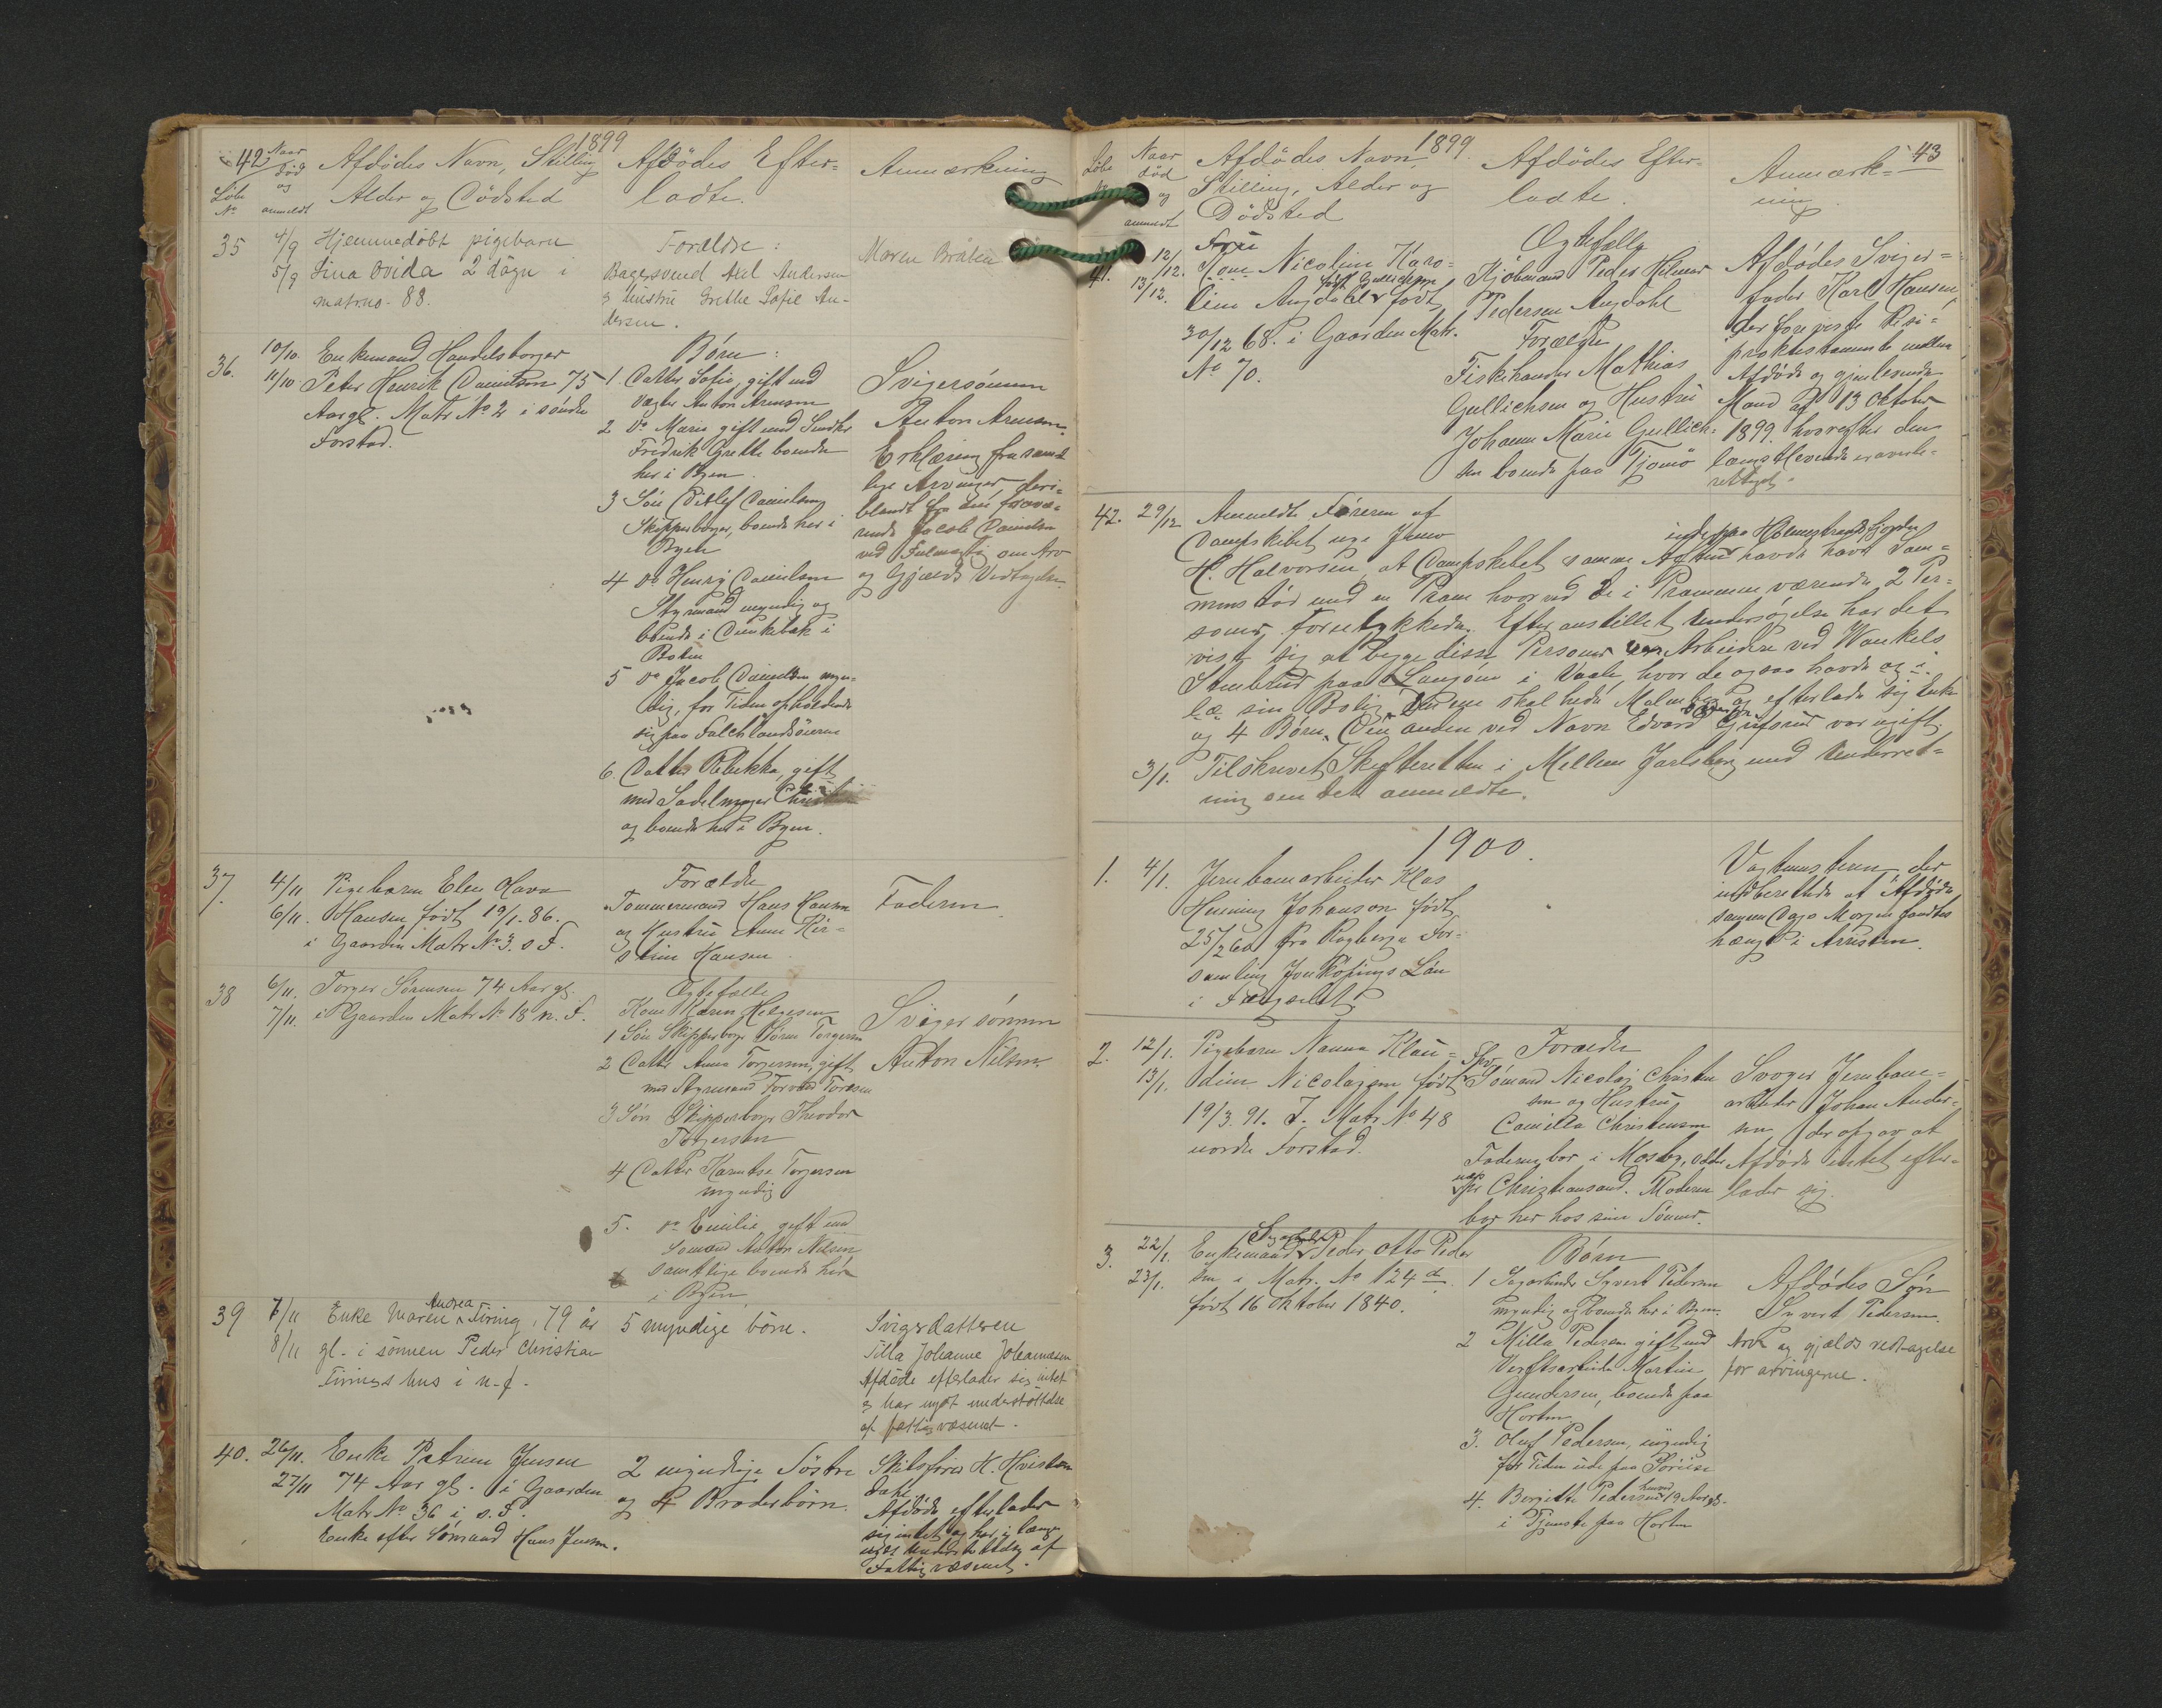 42
1899
Naar død og anmeldt
Løbe No
Afdødes Navn, Stilling
Alder og Dødsted
Afdødes Efter-
ladte.
Anmærkning
35
4/9
5/9
Hjemmedøbt pigebarn
Lina Ovida 2 døgn i
matr.no. 88.
Forældre:
Bagersvend Axel Andersen
& hustru Grethe Sofie An-
dersen.
Maren Bråten
36.
10/10.
11/10
Enkemand, Handelsborger
Peter Henrik Danielsen 75
Aar gl. Matr No 2 i søndre
Forstad.
Børn:
1. Datter Sofie, gift med
Anton Arnesen
2 Do Marie gift med
Fredrik Grette boende
her i Byen.
3 Søn Ditlef Danielsen
Skipperborger, boende her i
Byen
4 do Henry Danielsen
Styrmand myndig og
boende i
5 do Jacob Danielsen myn-
dig, for Tiden opholdende
sig paa Falchlandsøerne
6. Datter Rebekka, gift
med Sadelmager
og boende her i Byen.
Svigersønnen
Anton Arnesen.
Erklæring fra samt-
lige Arvinger, deri-
blandt fra den fravæ-
rende Jacob Danielsen
ved Fulmægtig om Arv
og Gjælds Vedtagelse.
37.
4/11
6/11.
Pigebarn Elen Olava
Hansen født 19/1.86.
i Gaarden Matr No 3. s F.
Forældre
Tømmermand Hans Hansen
og Hustru Anne Kir-
stine Hansen
Faderen
38
6/11.
7/11.
Torger Sørensen 74 Aar gl.
i Gaarden Matr No 18 n. F.
Ægtefælle
Kone Karen Helgesen
1 Søn Skipperborger Søren Torgersen
2 Datter Anna Torgersen, gift
med Styrmand Toresen
3 Søn Skipperborger Theodor
Torgersen
4 Datter Torgersen
myndig
5. do Emilie, gift med
Sømand Anton Nilsen
samtlige boende her
i Byen
Svigersønnen
Anton Nilsen.
39
7/11
8/11
Enke Maren Andrea Firing, 79 år
gl. i sønnen Peder Christian
Firings hus i n.f.
5 myndige børn.
Svigerdatteren
Tilla Johanne Johannesen
Afdøde efterlader sig intet
& har nydt understøttelse
af fattigvæsenet.
40.
26/11.
27/11
Enke Petrine Jensen
74 Aar gl. i Gaarden
Matr No 36 i s.F.
Enke efter Sømand Hans Jensen.
2 myndige Søstre
og 4 Broderbørn.
H.
Afdøde efterlader
sig intet og har i længe
nydt Understøttelse af
Fattigvæsenet.
43
1899.
Løbe No
Naar død og anmeldt
Afdødes Navn
Stilling, Alder og
Dødsted
Afdødes Efter-
ladte.
Anmærk-
ning
41.
12/12.
13/12.
Fru
Kone Nicoline Karo-
line Angdahl født Gullichsen født
30/12 68. i Gaarden Matr.
No 70.
Ægtefælle
Kjøbmand Peder Hilmer
Pedersen Angdahl
Forældre
Fiskehandler Mathias
Gullichsen og Hustru
Johanne Marie Gullich-
sen boende paa Tjømø
Afdødes Sviger-
fader Karl Hansen,
der foreviste Resi-
proktestamente mellem
Afdøde og gjenlevende
Mand af 13 Oktober
1899. hvorefter den
længstlevende er arvebe-
rettiget.
42.
29/12
Anmeldte Føreren af
Dampskibet
H. Halvorsen, at Dampskibet samme Aften inde paa Holmestrandsfjorden havde havt Sam-
menstød med en Pram hvorved de i Prammen værende 2 Per-
soner forulykkede. Efter anstillet Undersøgelse har det
vist sig at begge disse Personer var Arbeidere ved Wankels
Stenbrud paa Langøen i Vaale, hvor de ogsaa havde
sin Bolig. Den ene skal hede og efterlade sig Enke
og 4 Børn. Den anden ved Navn Edvard var ugift.
3/1.
Tilskrevet Skifteretten i Mellem Jarlsberg med Underret-
ning om det anmeldte.
1900.
1.
4/1.
Jernbanearbeider Klas
Henning Johanson født
25/2 60 fra Rogberga For-
samling Jonkøpings Län
i Fængslet
Vagtmesteren, der
indberettede at Afdøde
samme Dags Morgen fandtes
hængt i Arresten.
2.
12/1.
13/1.
Pigebarn Nanna Klau-
dine Nicolajsen født
19/3.91. I. Matr No 48
nordre Forstad.
Forældre
Sømand Nicolaj Christen
sen og Hustru
Camilla Christensen
Faderen bor i Mosby,
Christiansand. Moderen
bor her hos sine Sønner.
Svoger Jernbane-
arbeider Johan Ander-
sen, der opgav at
Afdøde intet efter-
lader sig.
3.
22/1.
23/1.
Enkemand Sagarbeider Peder Otto Peder
sen i Matr. No 124 d
født 16 Oktober 1840.
Børn
1 Sagarbeider Syvert Pedersen
myndig og boende her i Byen.
2 Milla Pedersen gift med
Verftsarbeider Martin
Gundersen, boende paa
Horten.
3. Oluf Pedersen, myndig
for Tiden ude paa
4. Borgitte Pedersen 19 Aar gl.
i Tjeneste paa Horten
Afdødes Søn
Syvert Pedersen.
Arv og gjælds vedtagelse
for arvingerne.